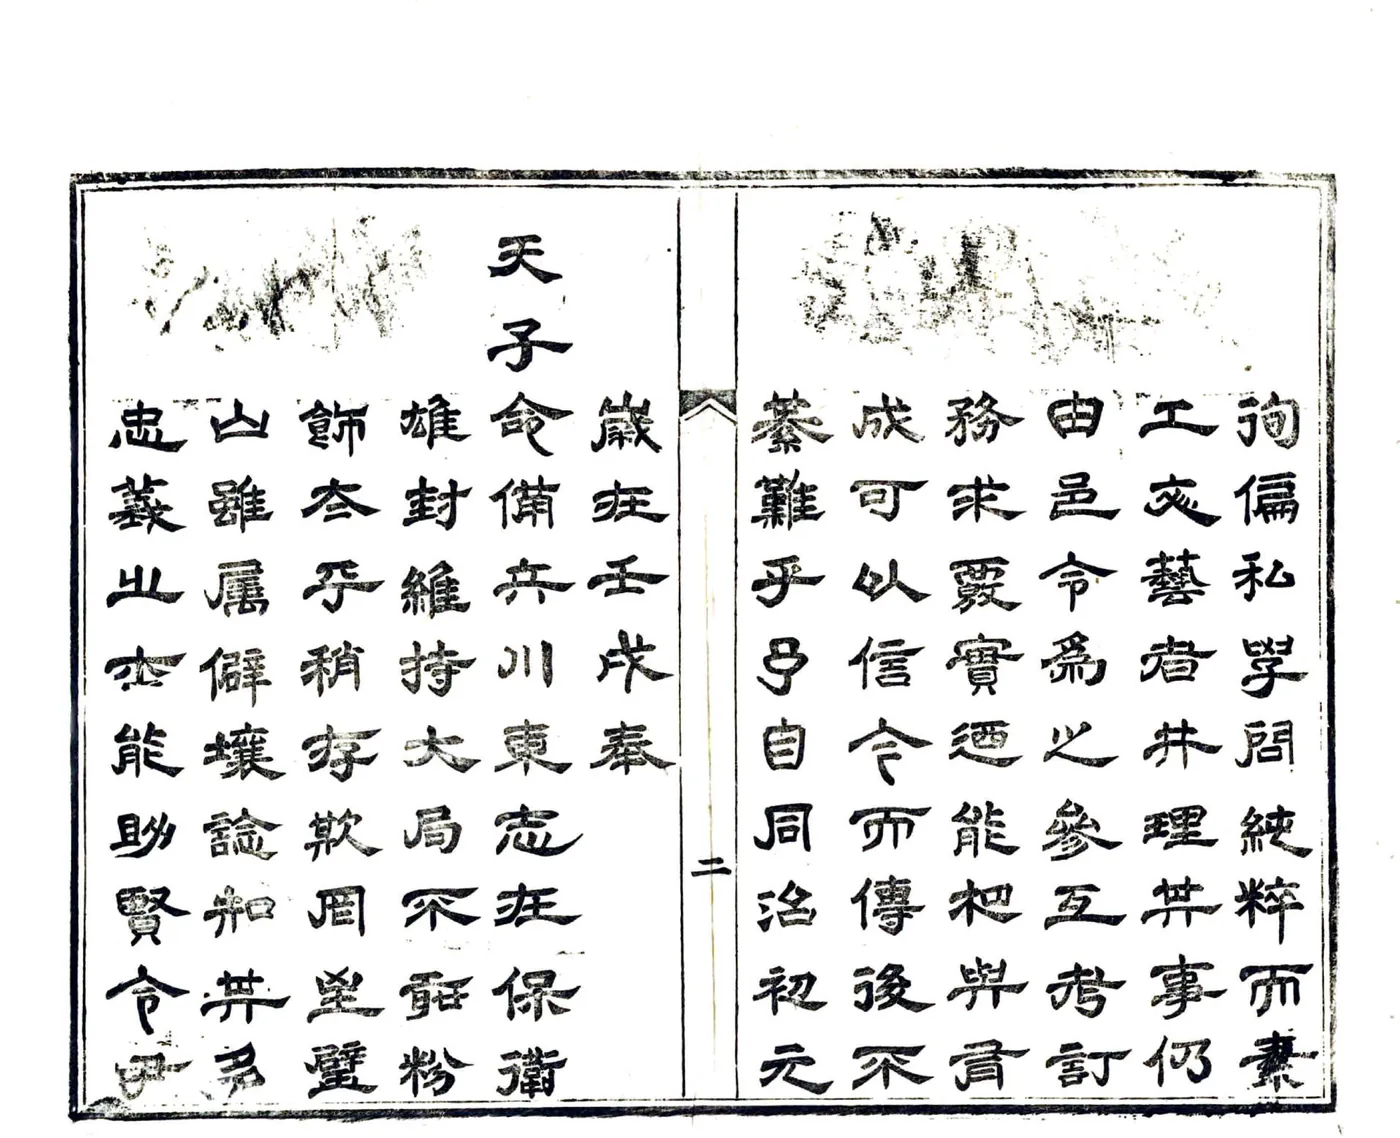 徇偏私學問純粹而素
工文藝者井理其事仍
由邑令為之參互考訂
務求覈實迺能杷與有
成可以信今而傳後不
綦難乎予自同治初元
二
歲在壬戌奉
天子命備兵川東志在保衛
雄封維持大局不敢粉
飾太平稍存欺罔墊璧
山雖属僻壤諗知其多
忠義之士能助賢令尹